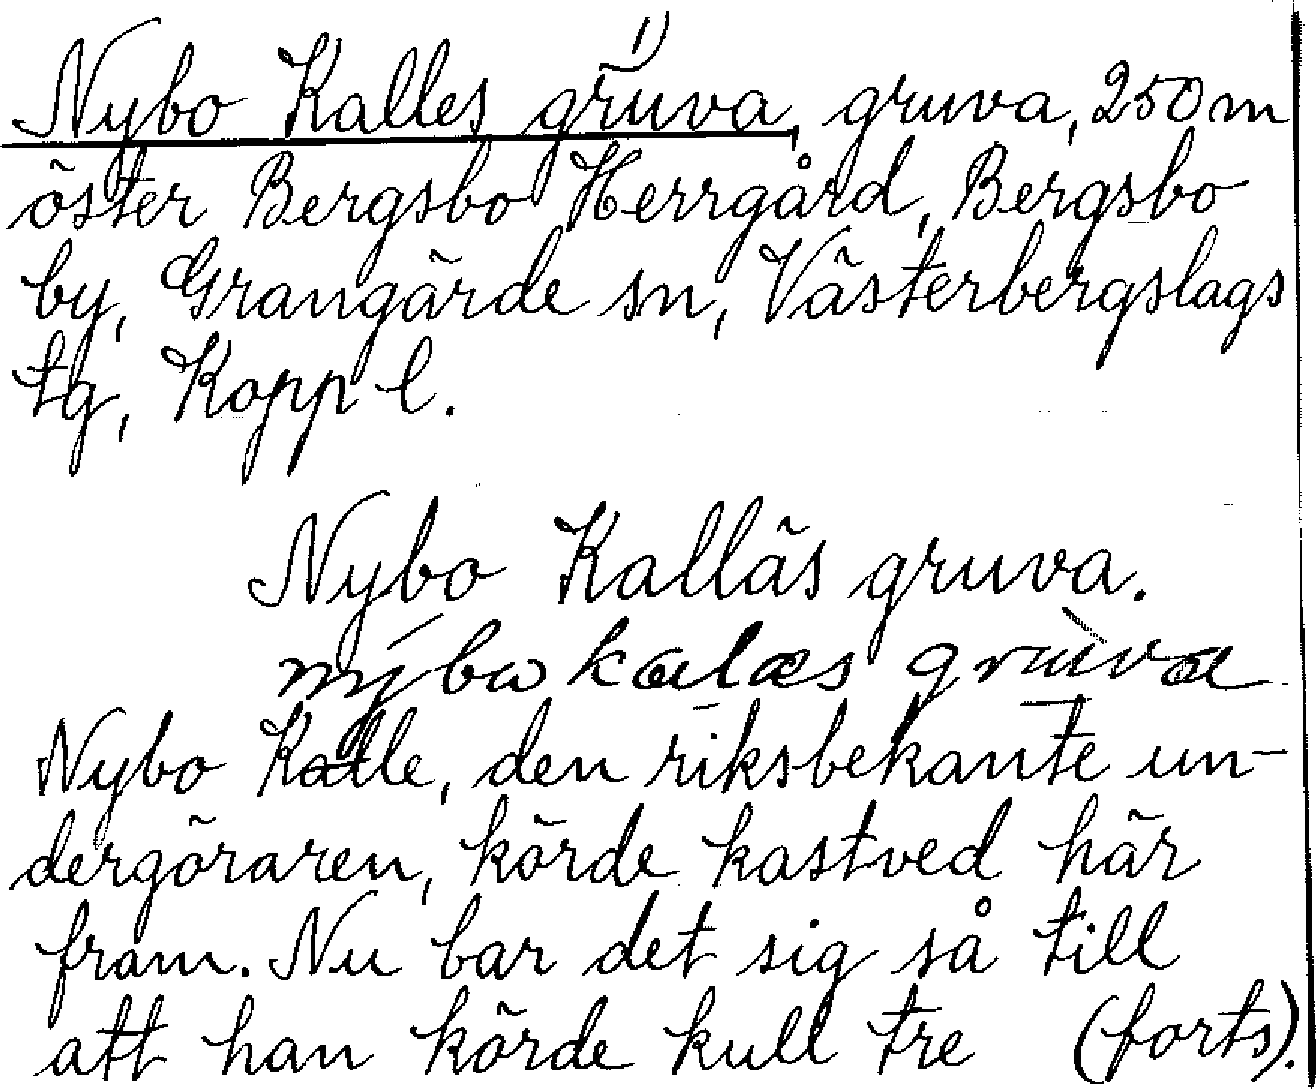 Nybo Kalles gruva,¹⁾ gruva, 250 m
öster Bergsbo Herrgård, Bergsbo
by, Grangärde sn, Västerbergslags
tg, Kopp l.
Nybo Kalläs gruva.
nýbo kalæs grùva
Nybo Kalle, den riksbekante un-
dergöraren, körde kastved här
fram. Nu bar det sig så till
att han körde kull tre (forts).